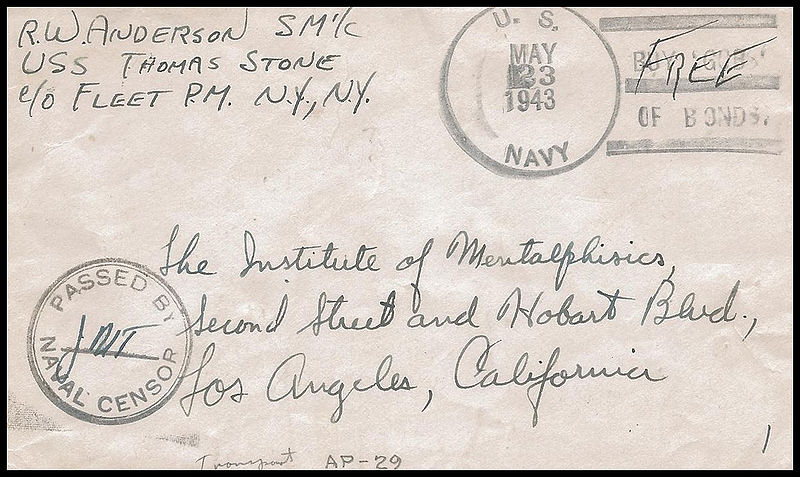 R.W. ANDERSON SM1/c
USS THOMAS STONE
c/o FLEET P.M. N.Y., N.Y.
U. S.
MAY
23
1943
NAVY
FREE
BUY
OF BONDS.
The Institute of Mentalphisics,
Second Street and Hobart Blvd.,
Los Angeles, California
PASSED BY
NAVAL CENSOR
Transport AP-29
1